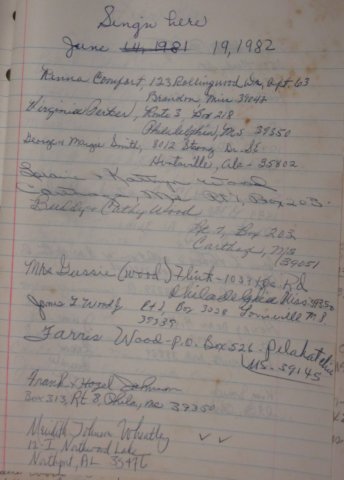 Sing'n here
June 14, 1981 19, 1982
Kenna Comfort, 123 Rollingwood Dr, Apt. 63
Brandon Miss 39042
Virginia Barber, Route 3, Box 218
Philadelphia, Ms 39350
George & Margie Smith, 8012 Strong Dr. SE
Huntsville, Ala - 35802
& Kathryn Wood
Carthage, Ms Rt 7, Box 203
Buddy & Cathy Wood
Rt 7, Box 203
Carthage, MS
39051
Mrs Gussie (Wood) Flint - 1033 Rd
Philadelphia Miss. 39350
James T Wood Rt 2, Box 332B Louisville MS
39339
Farris Wood - P.O. Box 526 - Pelahatchie
MS - 39145
Frank & Hazel Johnson
Box 313, Rt 8, Phila, Ms 39350
Meredith Johnson Wheatley
12-I Northwood Lake
Northport, AL 35476